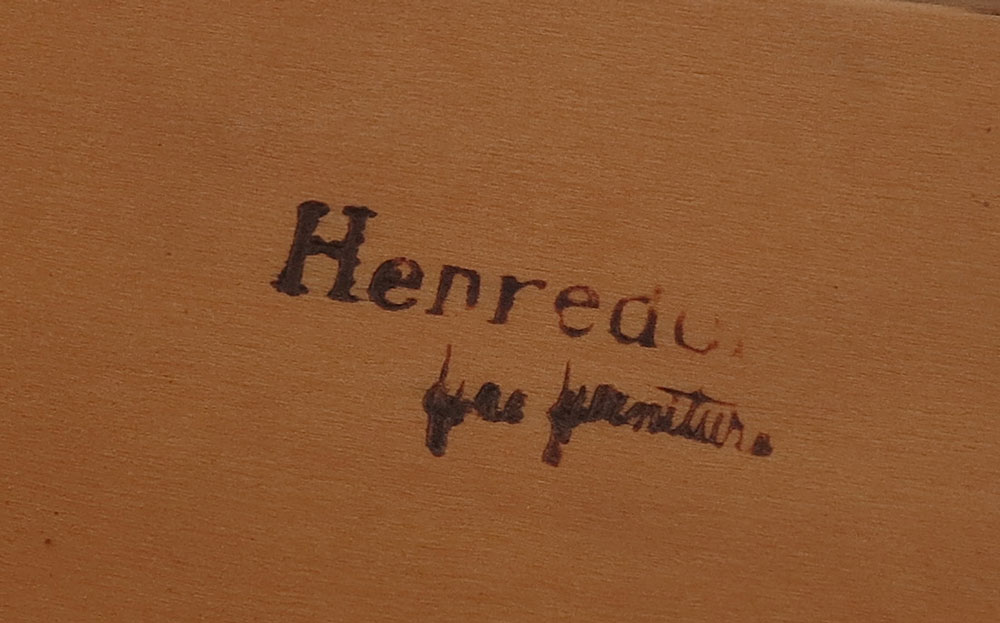 Henredo
fine furniture